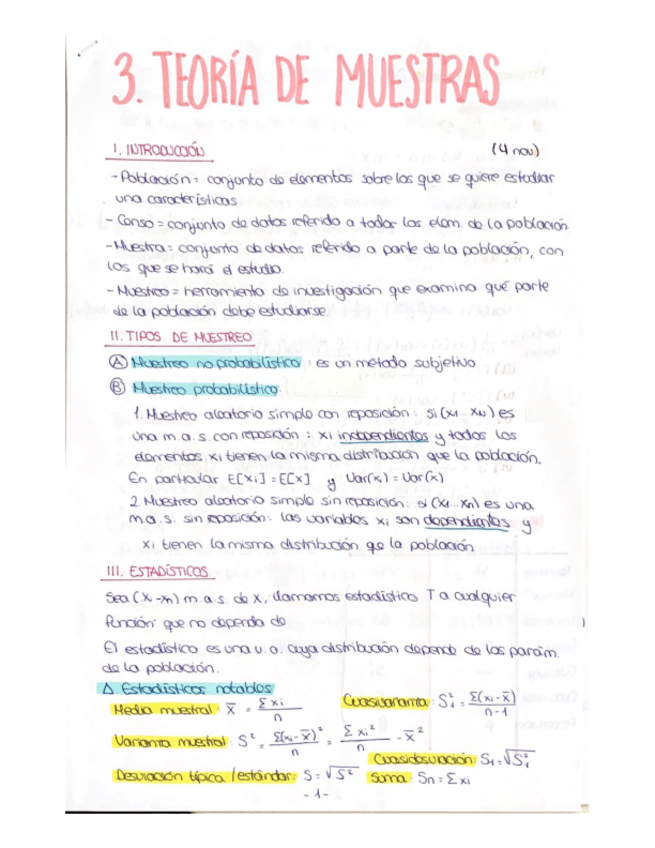 3. TEORÍA DE MUESTRAS
I. INTRODUCCIÓN (4 nov)
- Población = conjunto de elementos sobre los que se quiere estudiar
una características
- Censo = conjunto de datos referido a todos los elem. de la población
- Muestra = conjunto de datos referido a parte de la población, con
los que se hará el estudio.
- Muestreo = herramienta de investigación que examina qué parte
de la población debe estudiarse.
II. TIPOS DE MUESTREO
Ⓐ Muestreo no probabilístico : es un método subjetivo
Ⓑ Muestreo probabilístico:
1. Muestreo aleatorio simple con reposición: si (x1...xn) es
una m.a.s. con reposición : xi independientes y todos los
elementos xi tienen la misma distribución que la población.
En particular E[xi] = E[x] y Var(xi) = Var(x)
2. Muestreo aleatorio simple sin reposición: si (x1...xn) es una
m.a.s. sin reposición: las variables xi son dependientes y
xi tienen la misma distribución que la población
III. ESTADÍSTICOS
Sea (x1...xn) m.a.s. de x, llamamos estadístico T a cualquier
función que no dependa de
El estadístico es una v.a. cuya distribución depende de los parám.
de la población.
Δ Estadísticos notables
Media muestral: x̄ = Σxi / n Cuasivarianza: S₁² = Σ(xi - x̄) / n-1
Varianza muestral: S² = Σ(xi - x̄)² / n = Σxi² / n - x̄²
Cuasidesviación: S₁ = √S₁²
Desviación típica / estándar: S = √S² Suma: Sn = Σxi
- 1 -